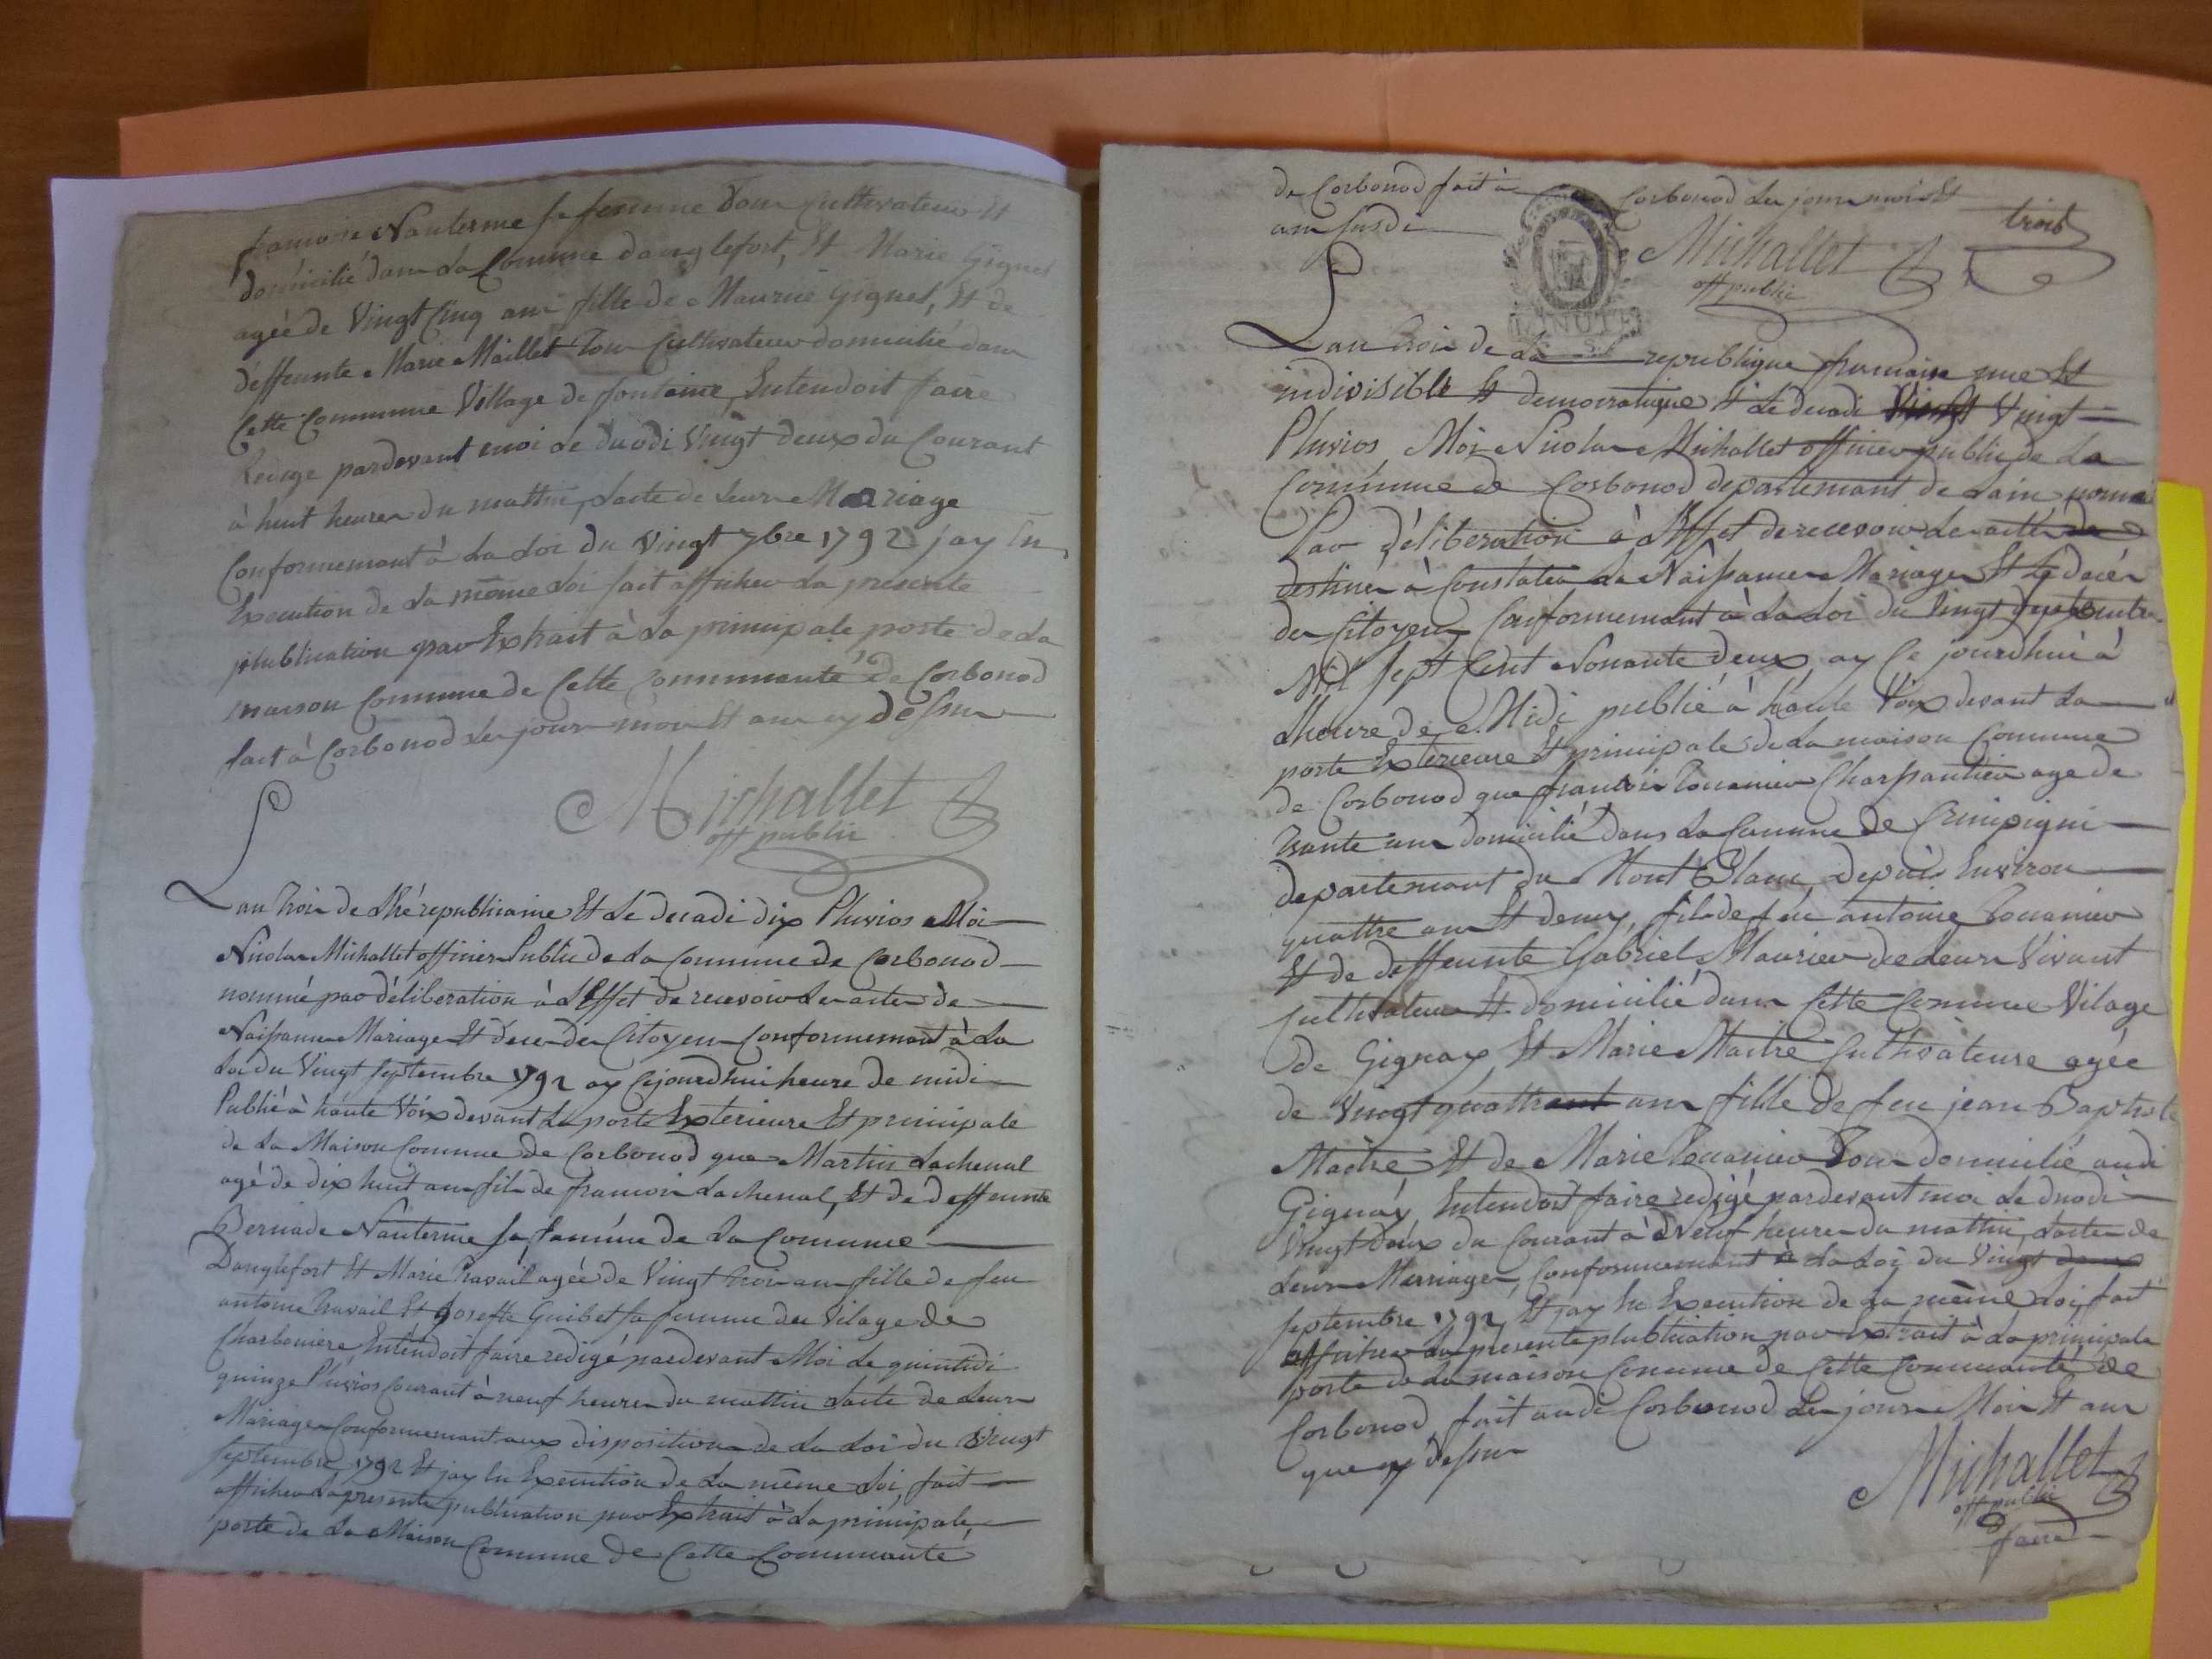 francoise Nanterme sa femme tous cultivateurs Et
domicilié dans La Commune danglefort, Et Marie Gignet
agée de Vingt Cinq ans fille de Maurice Gignet, Et de
deffeunte Marie Maillet Tous Cultivateurs domicilié dans
Cette Commune Village de fontaine, Entendoit faire
Redige pardevant moi le duodi Vingt deux du Courant
à huit heures du mattin, Lacte de Leurs Mariage
Conformement à La Loi du Vingt 7bre 1792 jay En
Execution de La même Loi fait afficher La presente
publication par Extrait à La principale porte de La
maison Commune de Cette Communauté de Corbonod
fait à Corbonod Les jour mois Et ans cy dessus
Michallet
off public
Lan trois de Lhé republicaine Et Le decadi dix Pluvios Moi
Nicolas Michallet officier Public de La Commune de Corbonod
nommé par déliberation à LEffet de recevoir Les actes de
Naissances Mariages Et deces des Citoyens Conformement à La
Loi du Vingt septembre 1792 ay Cejourdhui heure de midi
Publié à haute Voix devant La porte Exterieure Et principale
de La Maison Commune de Corbonod que Martin Lachenal
agé de dix huit ans fils de francois Lachenal, Et de deffeunte
Bernade Nanterme sa famme de La Commune
Danglefort Et Marie Travail agée de Vingt trois ans fille de feu
antoine Travail Et Josefte Guibet sa femme du Vilage de
Charboniere Entendoit faire redigé pardevant Moi Le quintidi
quinze Pluvios Courant à neuf heures du mattin Lacte de Leurs
Mariages Conformement aux dispositions de La Loi du Vingt
septembre 1792 Et jay En Execution de La même Loi, fait
afficher La presente publication par Extrait à La principale
porte de La Maison Commune de Cette Communauté
de Corbonod fait à Corbonod Les jours mois Et
ans susdi
trois
Michallet
off public
MINUTE
Lan trois de La republique francaise une Et
indivisible Et democratique Et Le decadi Vingt
Pluvios Moi Nicolas Michallet officier public de La
Commune de Corbonod departemant de Lain nommé
Par déliberation à LEffet de recevoir Les actes
destinés à Constater La Naissances Mariages Et Le décés
des Citoyens Conformement à La Loi du Vingt septembre
Mil sept Cent Nonante deux ay Ce jourdhui à
Lheure de Midi publié à haute Voix devant La
porte Exterieure Et principale de La maison Commune
de Corbonod que francois Charpantier age de
trante ans domicilié dans La Commune de
departemant du Mont Blanc depuis Environ
quattre ans Et demy, fils de feu antoine
Et de deffeunte Gabriel de Leurs Vivant
Cultivateurs Et domicilié dans Cette Commune Vilage
de Gignay Et Marie Maitre Cultivateure agée
de Vingt quattre ans fille de feu jean Baptiste
Maitre Et de Marie Tous domicilié audi
Gignay Entendoit faire redigé pardevant moi Le duodi
Vingt deux du Courant à Neuf heures du mattin, Lactes de
Leurs Marriages, Conformement à La Loi du Vingt
septembre 1792 Et jay En Execution de La même Loi, fait
afficher La presente plublication par Extrait à La principale
porte de La maison Commune de Cette Communauté de
Corbonod fait audi Corbonod Les jours Mois Et ans
que cy dessus
Michallet
off public